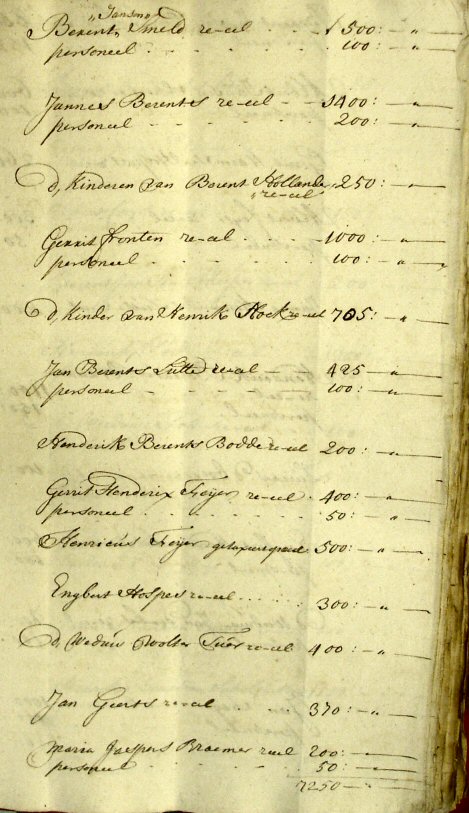 "Jansmol
Berent Smeld re-eel - - 500: - "
personeel - - - 100: - "
Jannes Berents re-eel - - 1400: - "
personeel - - - 200: - "
d, Kinderen van Berent Hollander 250: - "
"re-eel
Gerrit fronten re-eel - - 1000: - "
personeel - - - 100: - "
d, Kinder van Henrik Hoek re-eel 705: - "
Jan Berents Sutte re-eel - 425 - "
personeel - - - 100: - "
Henderik Berents Bodde re-eel 200: - "
Gerrit Henderix Feijer re-eel 400: - "
personeel - - - 50: - "
Henricus Feijer getaxeert 500: - "
Engbert Hospes re-eel - - - 300: - "
d, Weduw Wolter re-eel 400: - "
Jan Geerts re-eel - 370 - "
Maria Jaspers Braemer reeel 200: - "
personeel - - - 50: - "
7250 - "